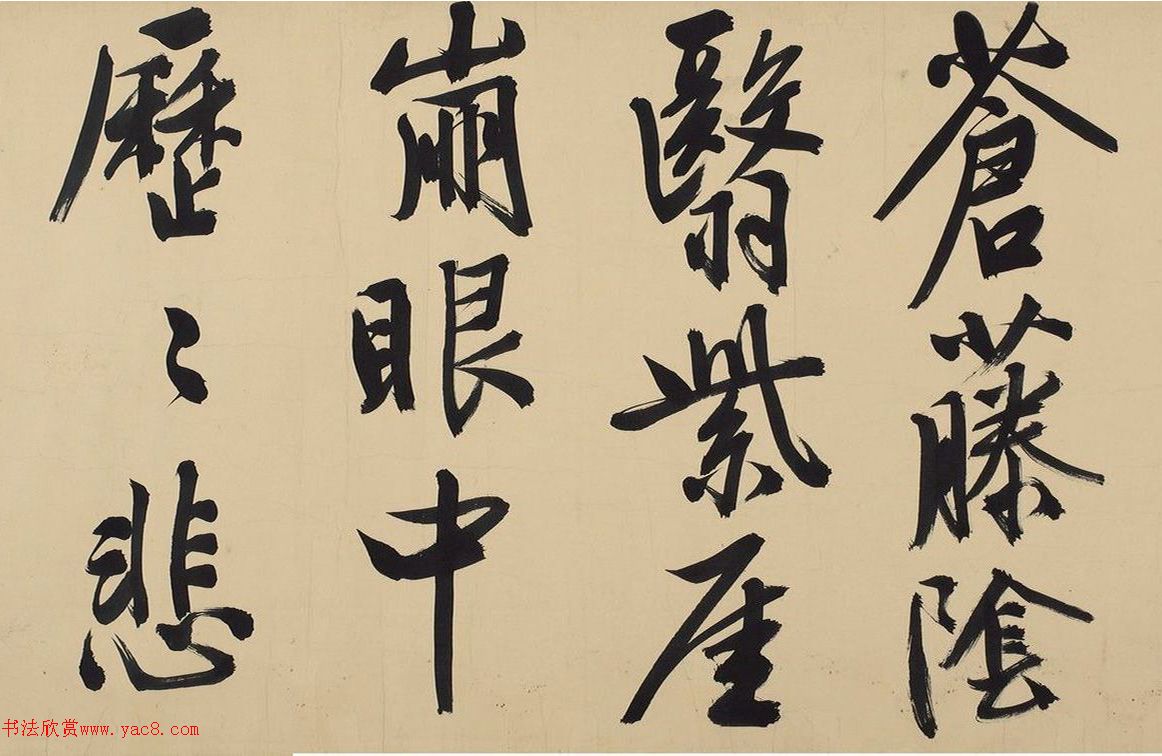 蒼藤陰
翳紫厓
崩眼中
歷〻悲
书法欣赏www.yac8.com